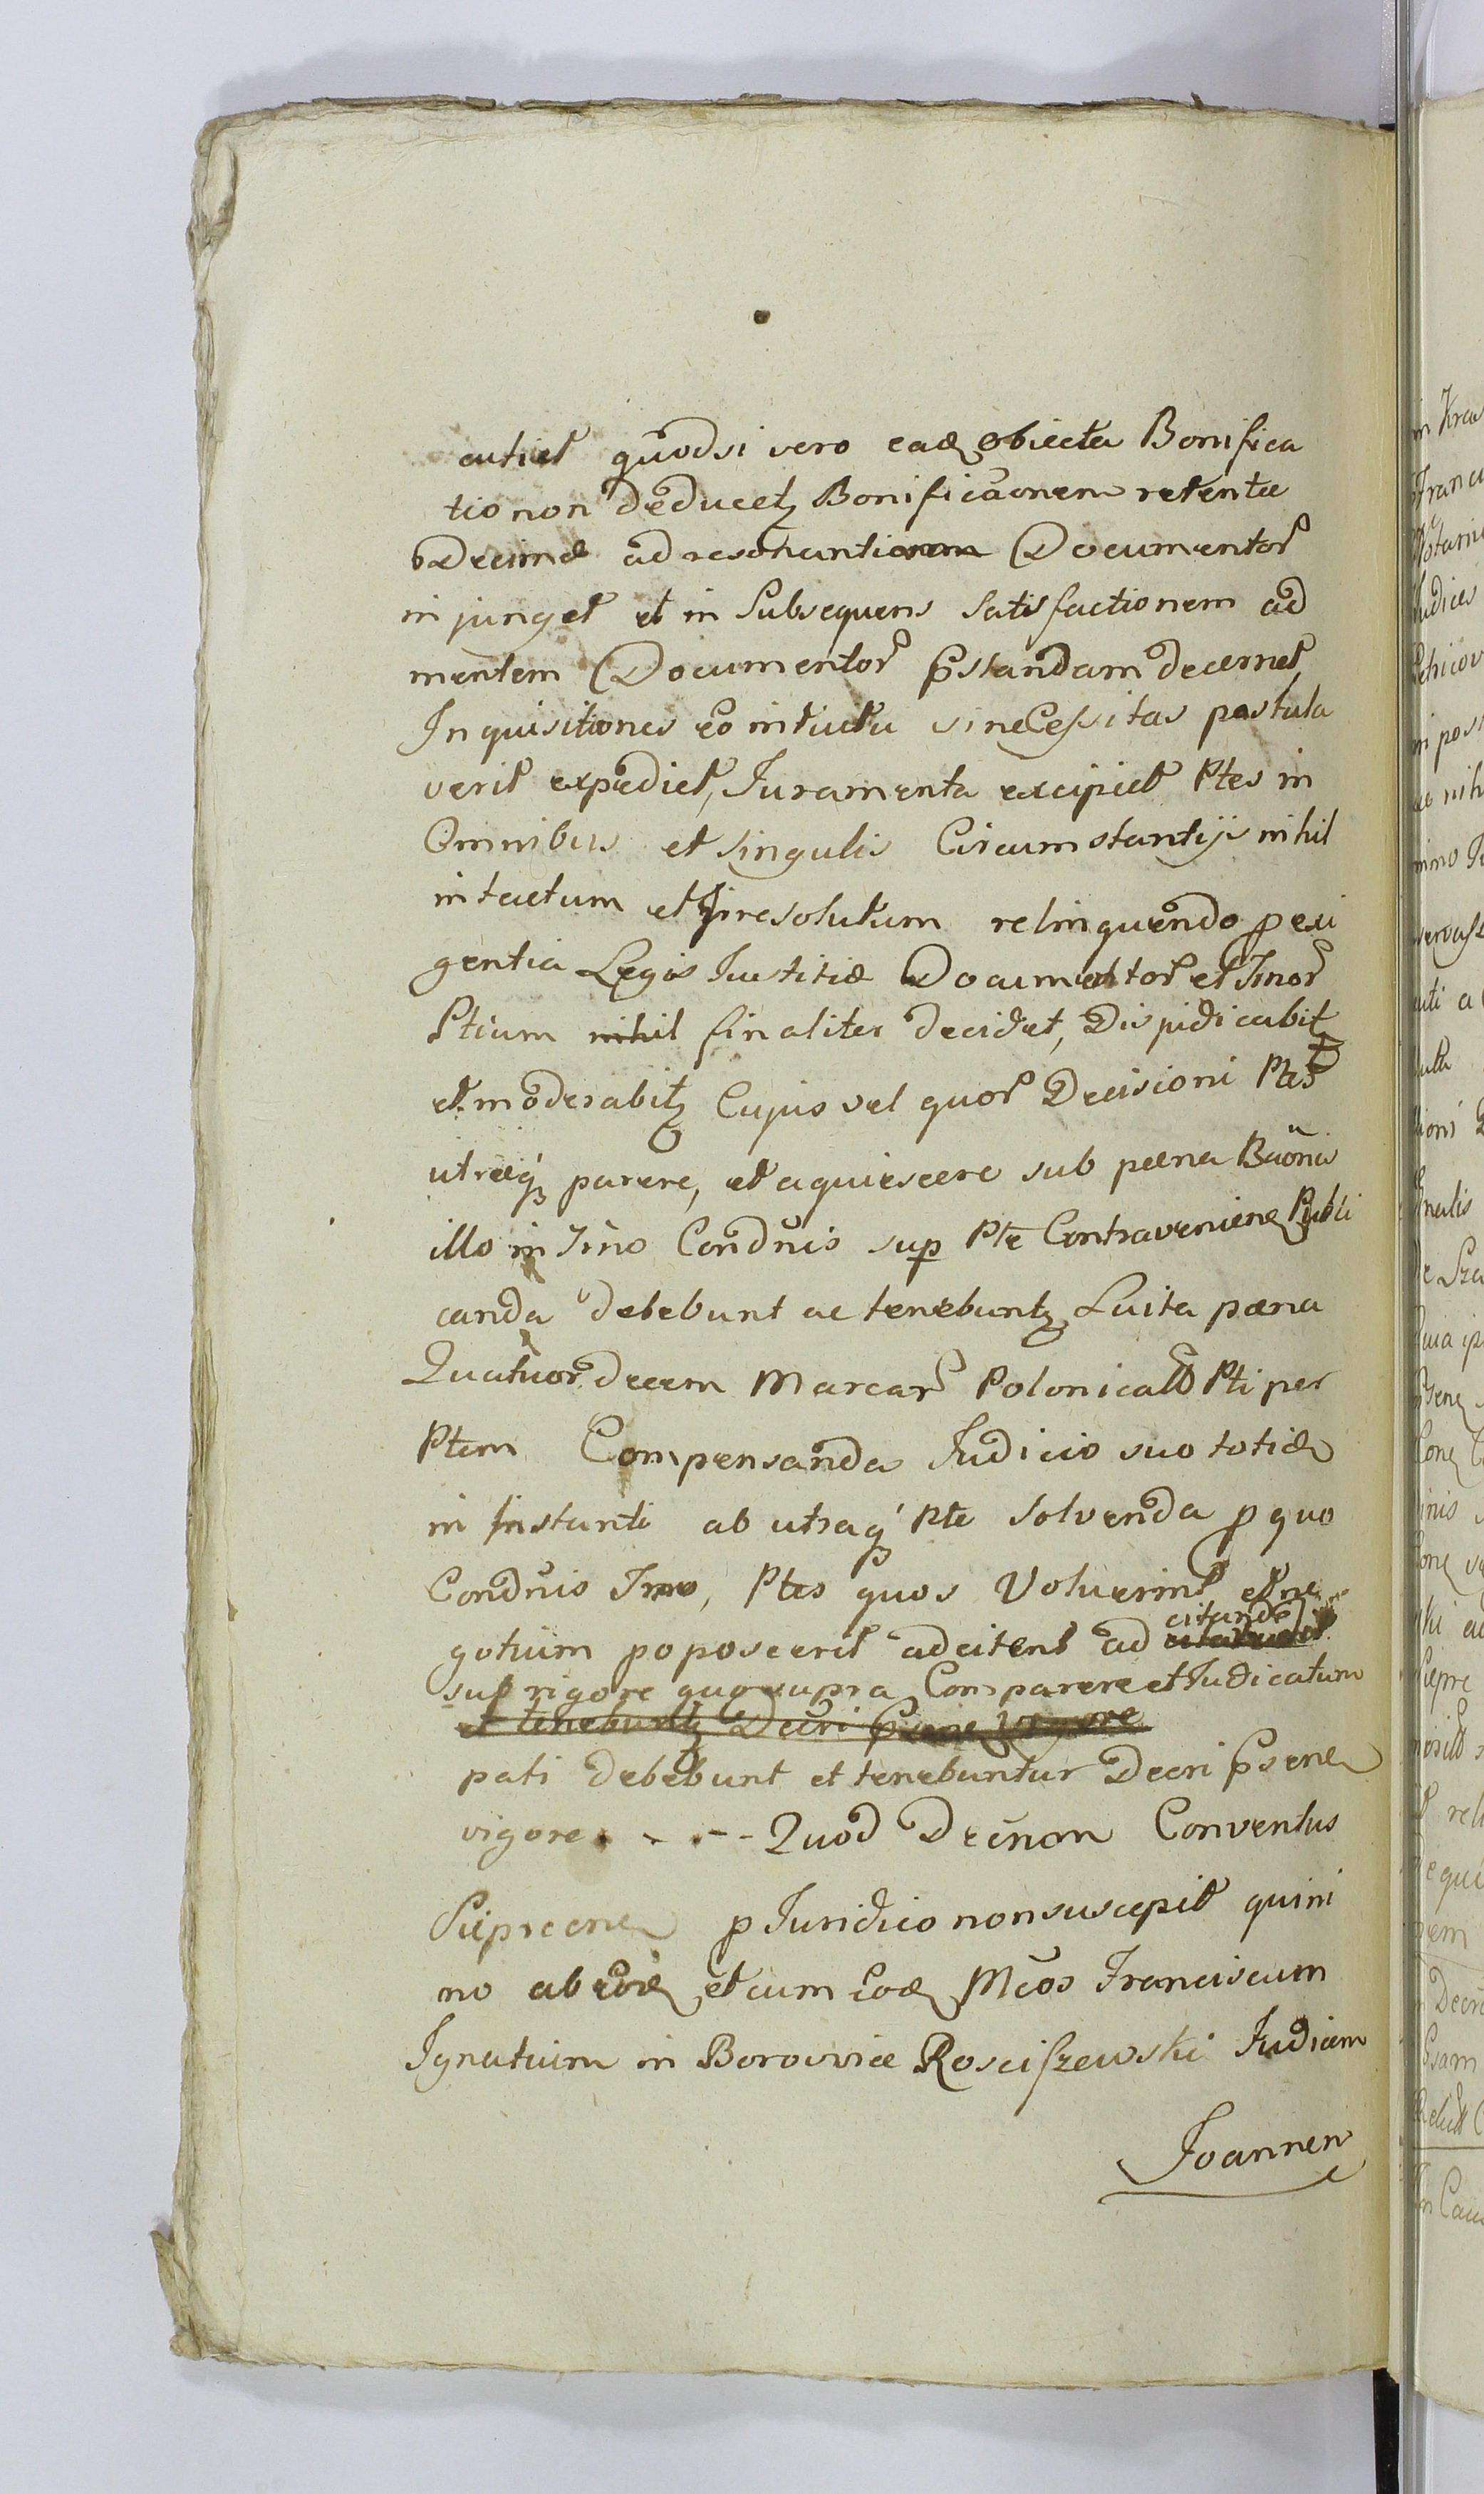 cutiet quodsi vero eadē obiecta Bonifica
tio non deducetꝫ Bonificãonem retentæ
Decimæ ad resonantiam Documentor
injunget et in Subsequens Satisfactionem ad
mentem Documentor p̃standam decernet
Inquisitiones eo intuitu si neceſsitas postula
verit expediet, Juramenta excipiet Ptes in
Omnibus et singulis Circumstantijs nihil
intactum et Irresolutum relinquendo p exi
gentia Legis Justitiæ Documentor et Jnor
Ptium nihil finaliter decidet, Dispidicabitꝫ
et moderabitꝫ Cujus vel quor Decisioni Ptes
utræqꝫ parere, et aquiescere sub pæna Bãonis
illo in Jno Condn̄is sup Pte Contravenien Publi
canda debebunt ac tenebuntꝫ Luita pæna
Quatuordecem Marcar Polonicaliũ Pti per
Ptem Compensanda Judicio suo totidē
in Instanti ab utraqꝫ Pte Solvenda p quo
Condn̄is Jno, Ptes quos Voluerint et ne
gotium poposcerit adcitent ad citandi
sub rigore quo supra Comparere et Judicatum
et tenebuntꝫ Decri p̃sen vigore
pati debebunt et tenebuntur Decri p̃sen
vigore. - - - Quod Decr̃um Conventus
Sieprcen p Juridico non suscepit quin i
no ab eodē et cum eodē Mcos Franciscum
Ignatium in Borowice Rosciſzewski Judicem
Joannem